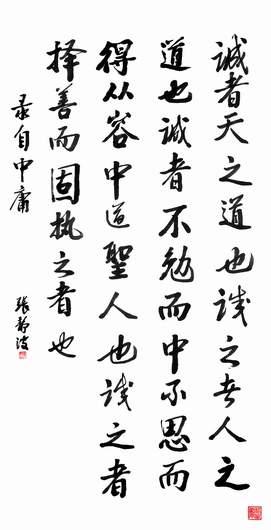 诚者天之道也诚之者人之
道也诚者不勉而中不思而
得从容中道聖人也诚之者
择善而固执之者也
录自中庸
張静波